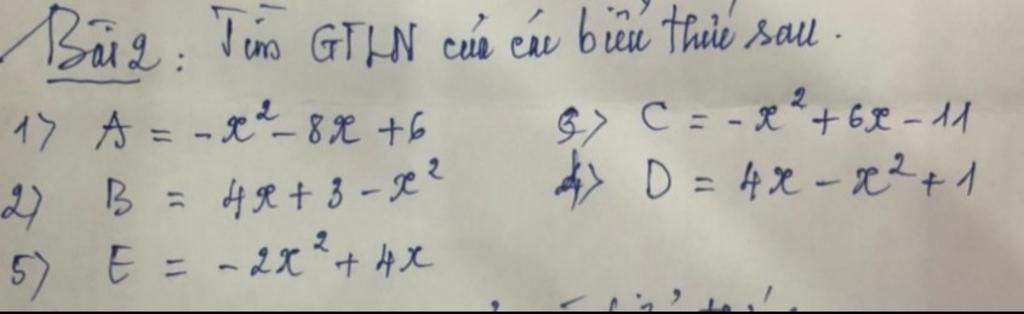 Bài 2 : Tìm GTLN của các biểu thức sau .
1) A = -x² - 8x + 6
3) C = -x² + 6x - 11
2) B = 4x + 3 - x²
4) D = 4x - x² + 1
5) E = -2x² + 4x